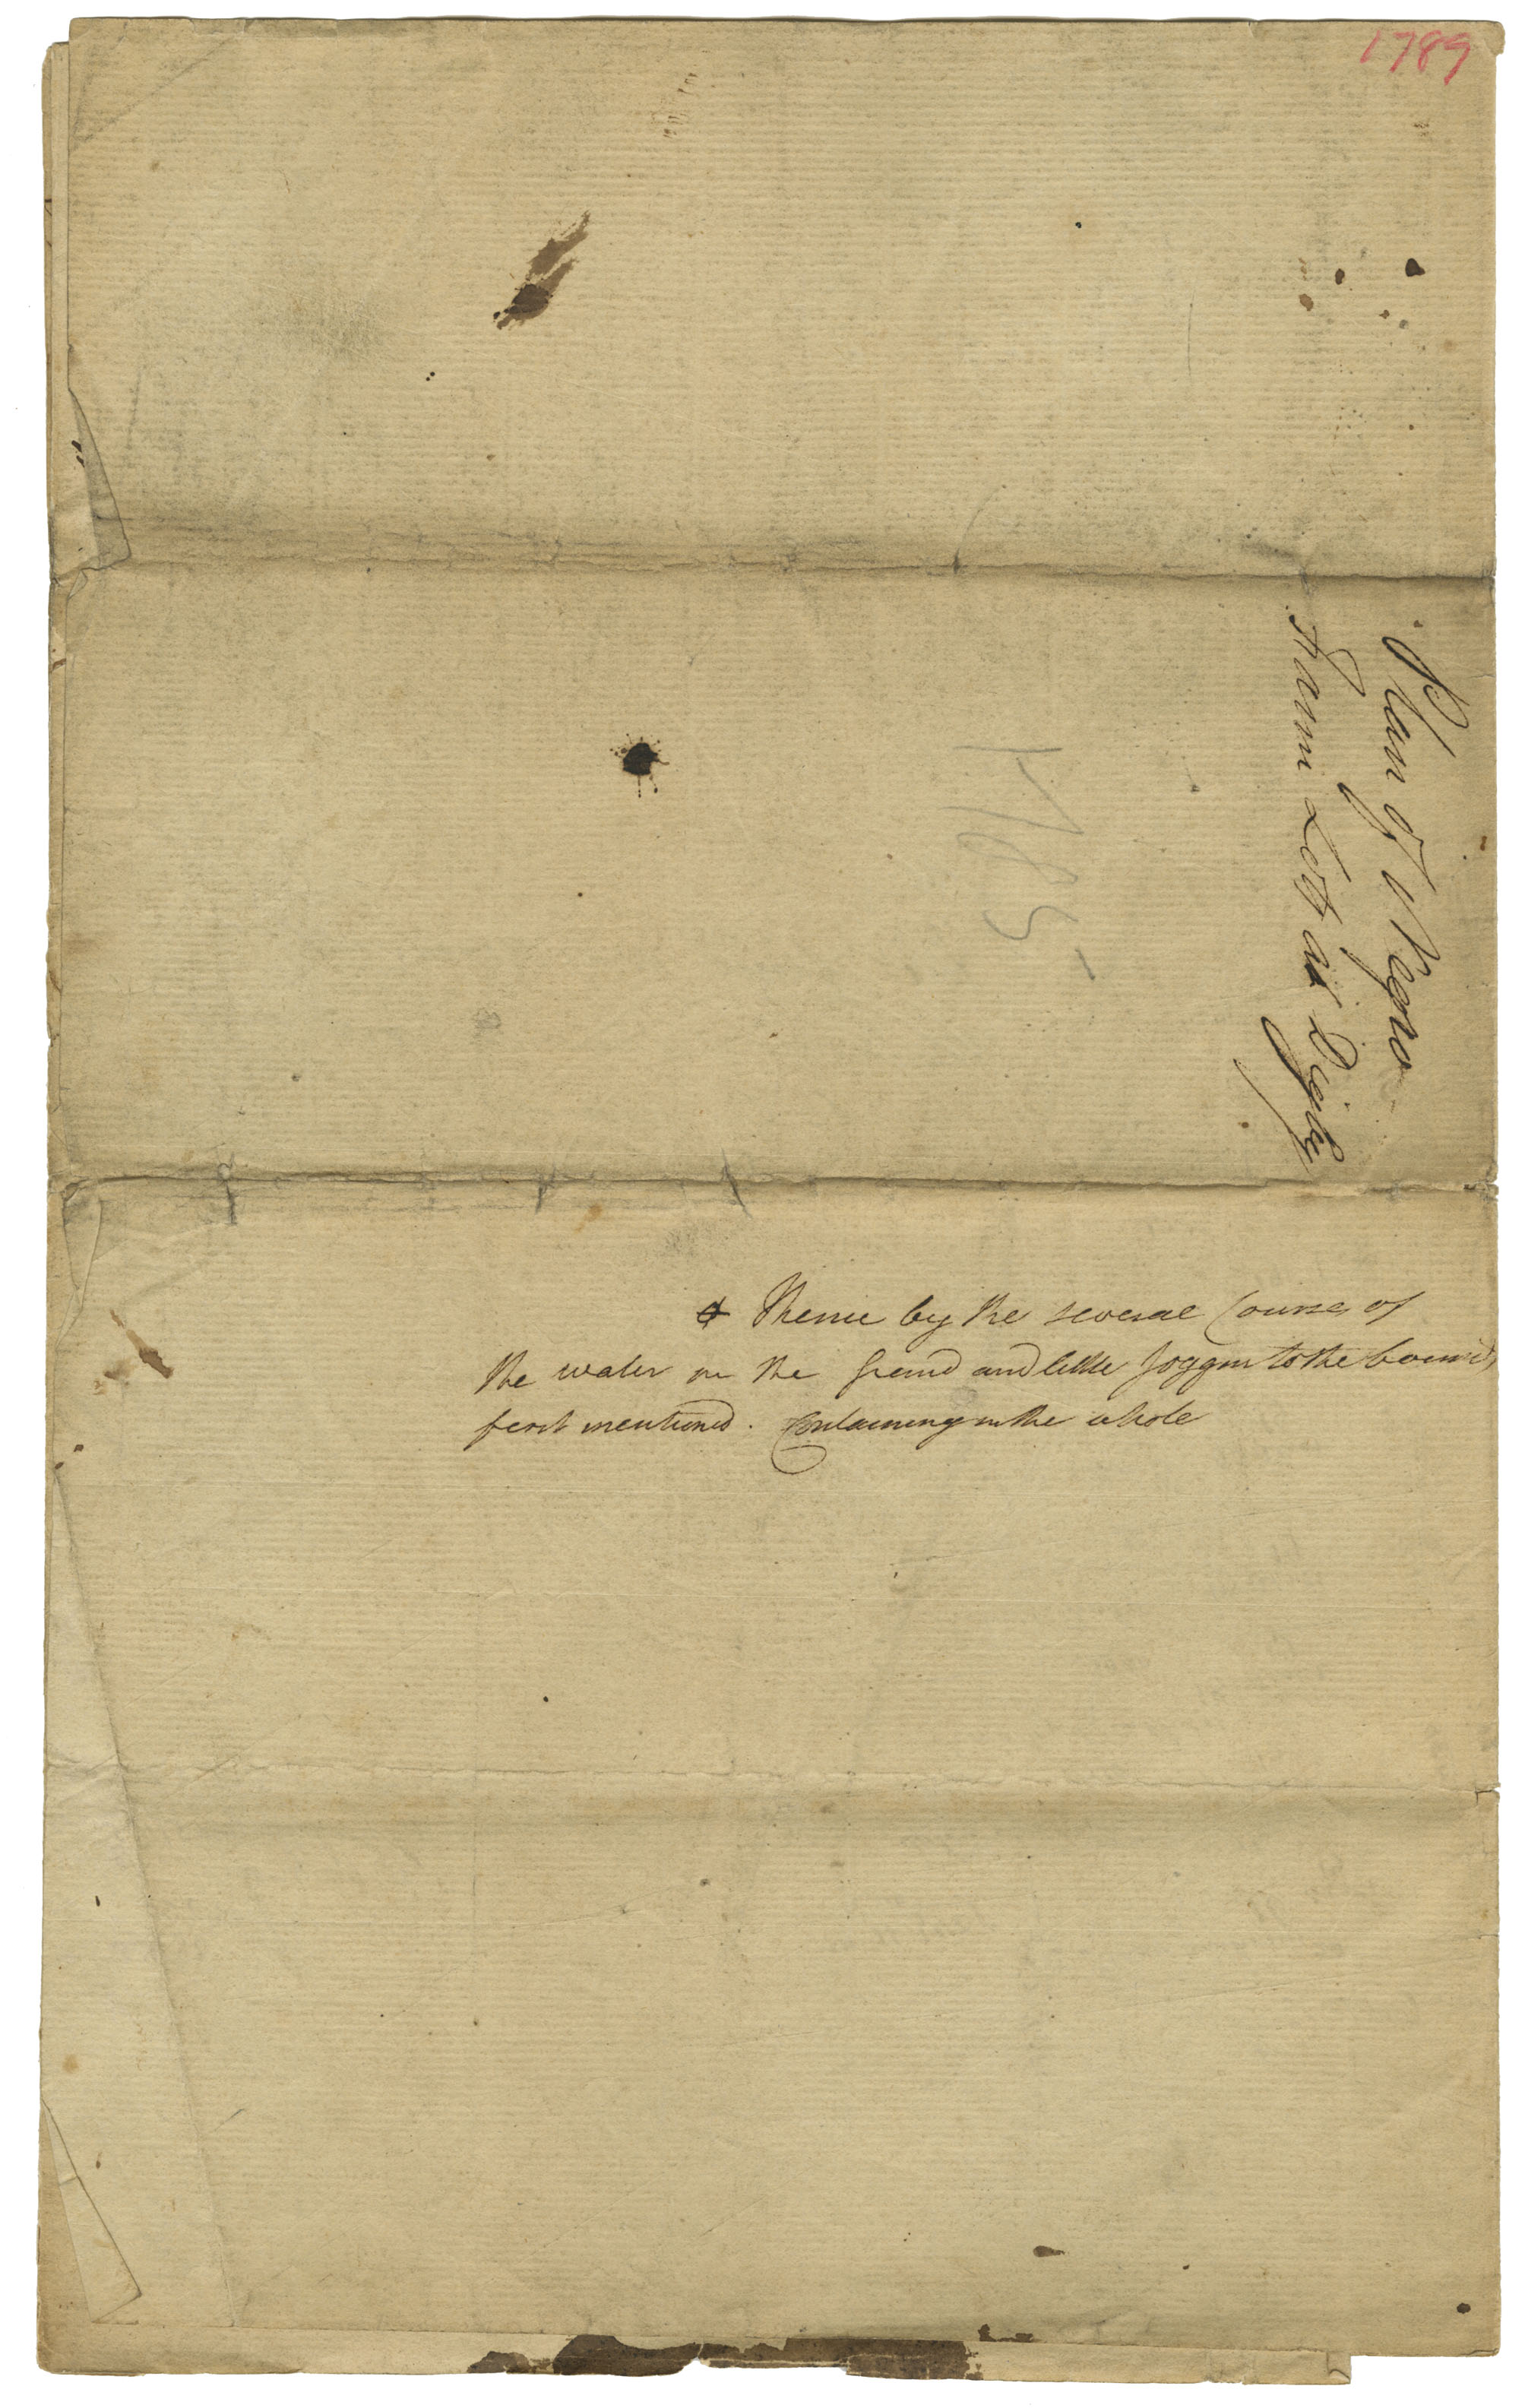 1789
Plan of Negro
Farm Lots at Digby
1785
& Thence by the several Courses of
the water in the Grand and little Joggin to the bounds
first mentioned. Containing in the whole